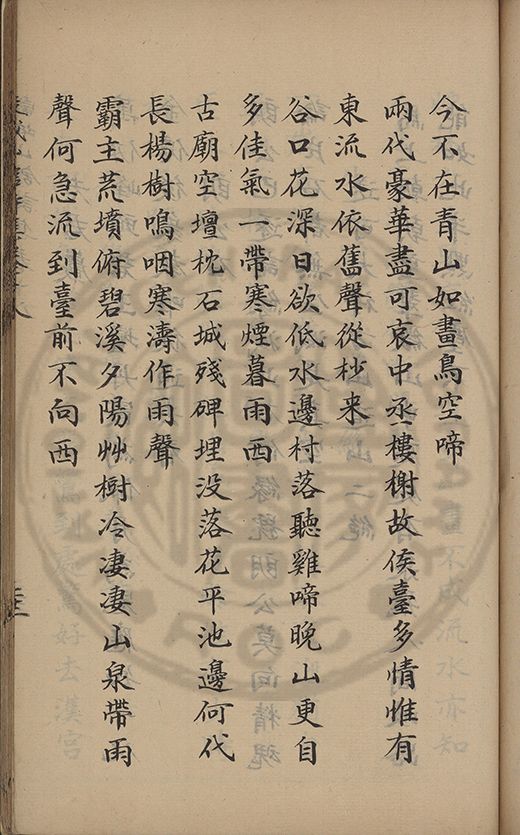 今不在青山如畫鳥空啼
兩代豪華盡可哀中丞樓榭故侯臺多情惟有
東流水依舊聲從杪来
谷口花深日欲低水邊村落聽雞啼晚山更自
多佳氣一帶寒煙暮雨西
古廟空壇枕石城殘碑埋没落花平池邊何代
長楊樹鳴咽寒濤作雨聲
霸主荒墳俯碧溪夕陽艸樹冷凄凄山泉帶雨
聲何急流到臺前不向西